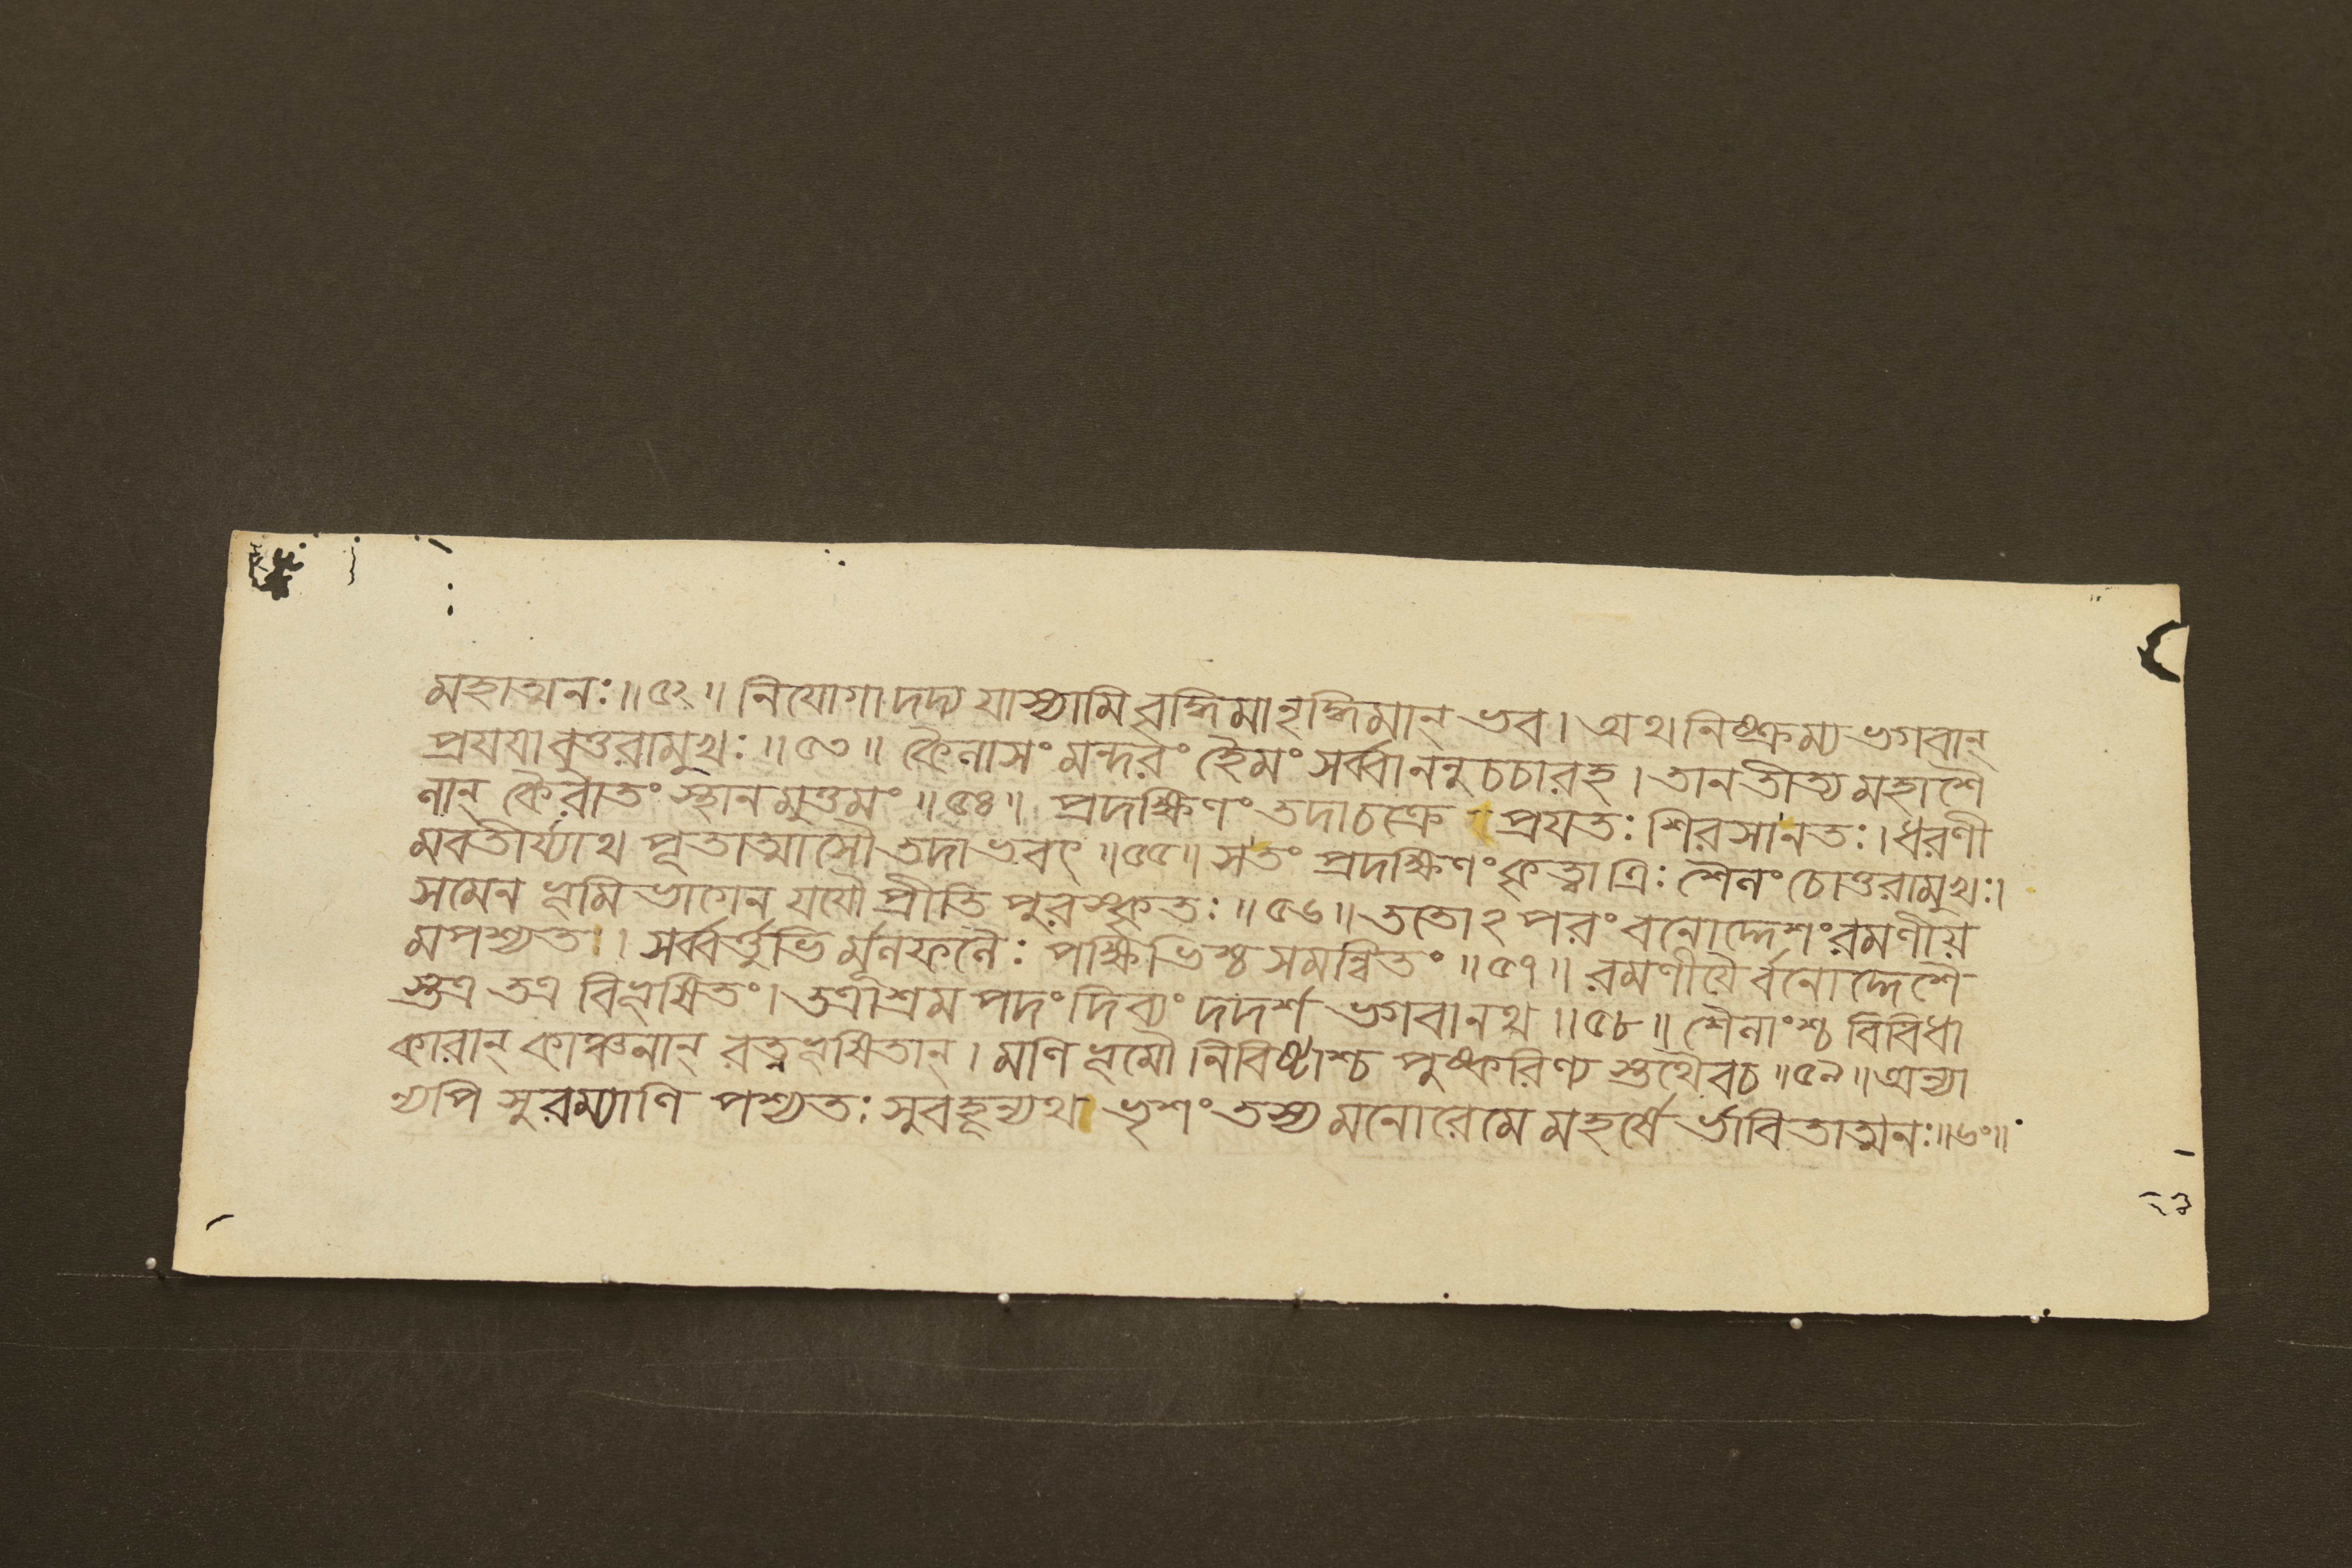 মহাত্মনঃ॥৫২॥ নিযোগাদদ্য যাস্যামি বৃদ্ধিমানৃদ্ধিমান্ ভব। অথ নিষ্ক্রম্য ভগবান্
প্রযযাবুত্তরামুখঃ॥৫৩॥ কৈলাসং মন্দরং হৈমং সর্ব্বাননুচচারহ। তানতীত্য মহাশৈ
লান্ কৈরাতং স্থানমুত্তমং॥৫৪॥ প্রদক্ষিণং তদাচক্রে প্রযতঃ শিরসানতঃ। ধরণী
মবতীর্য্যাথ পূতাত্মাসৌ তদাভবৎ॥৫৫॥ সতং প্রদক্ষিণং কৃত্বা ত্রিঃ শৈলং চোত্তরামুখঃ।
সমেন ভূমি ভাগেন যযৌ প্রীতি পুরস্কৃতঃ॥৫৬॥ ততোঽপরং বনোদ্দেশং রমণীয়
মপশ্যত। সর্ব্বর্ত্তুভি র্মূলফলৈঃ পক্ষিভিশ্চ সমন্বিতং॥৫৭॥ রমণীযৈ র্বনোদ্দেশৈ
স্তত্র তত্র বিভূষিতং। তত্রাশ্রম পদং দিব্যং দদর্শ ভগবানথ॥৫৮॥ শৈলাংশ্চ বিবিধা
কারান্ কাঞ্চনান্ রত্নভূষিতান্। মণি ভূমৌ নিবিষ্টাশ্চ পুষ্করিণ্য স্তথৈবচ॥৫৯॥ অন্যা
ন্যপি সুরম্যাণি পশ্যতঃ সুবহূন্যথ ভৃশং তস্য মনোরেমে মহর্ষে র্ভাবিতাত্মনঃ॥৬০॥